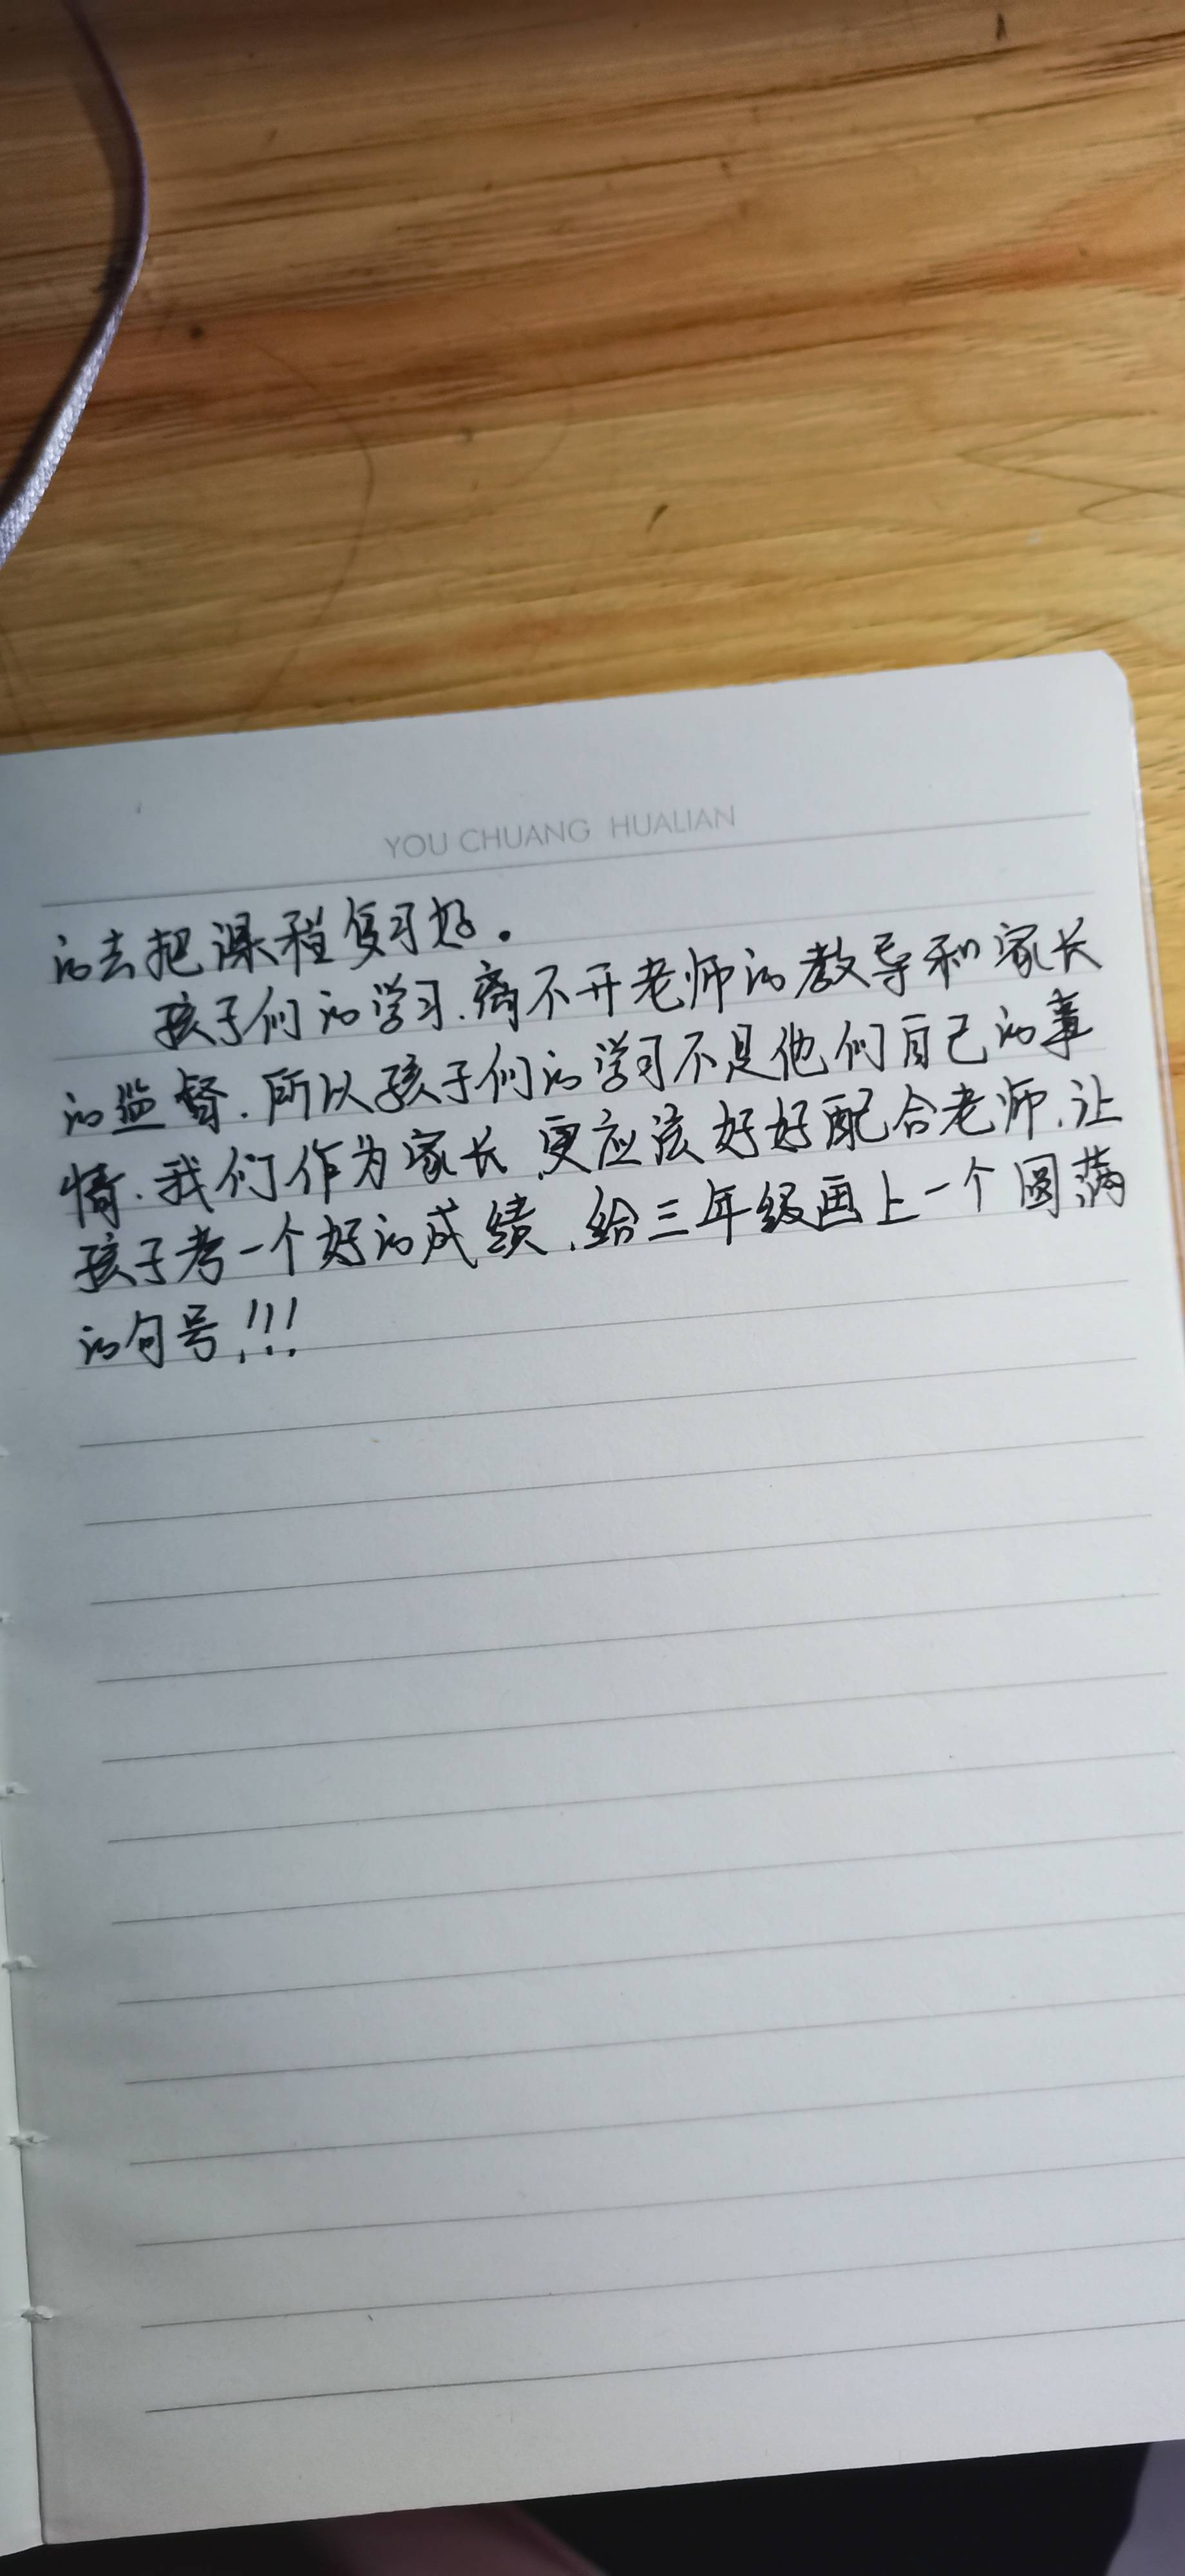 YOU CHUANG HUALIAN
的去把课程复习好。
孩子们的学习.离不开老师的教导和家长
的监督.所以孩子们的学习不是他们自己的事
情.我们作为家长.更应该好好配合老师.让
孩子考一个好的成绩.给三年级画上一个圆满
的句号!!!